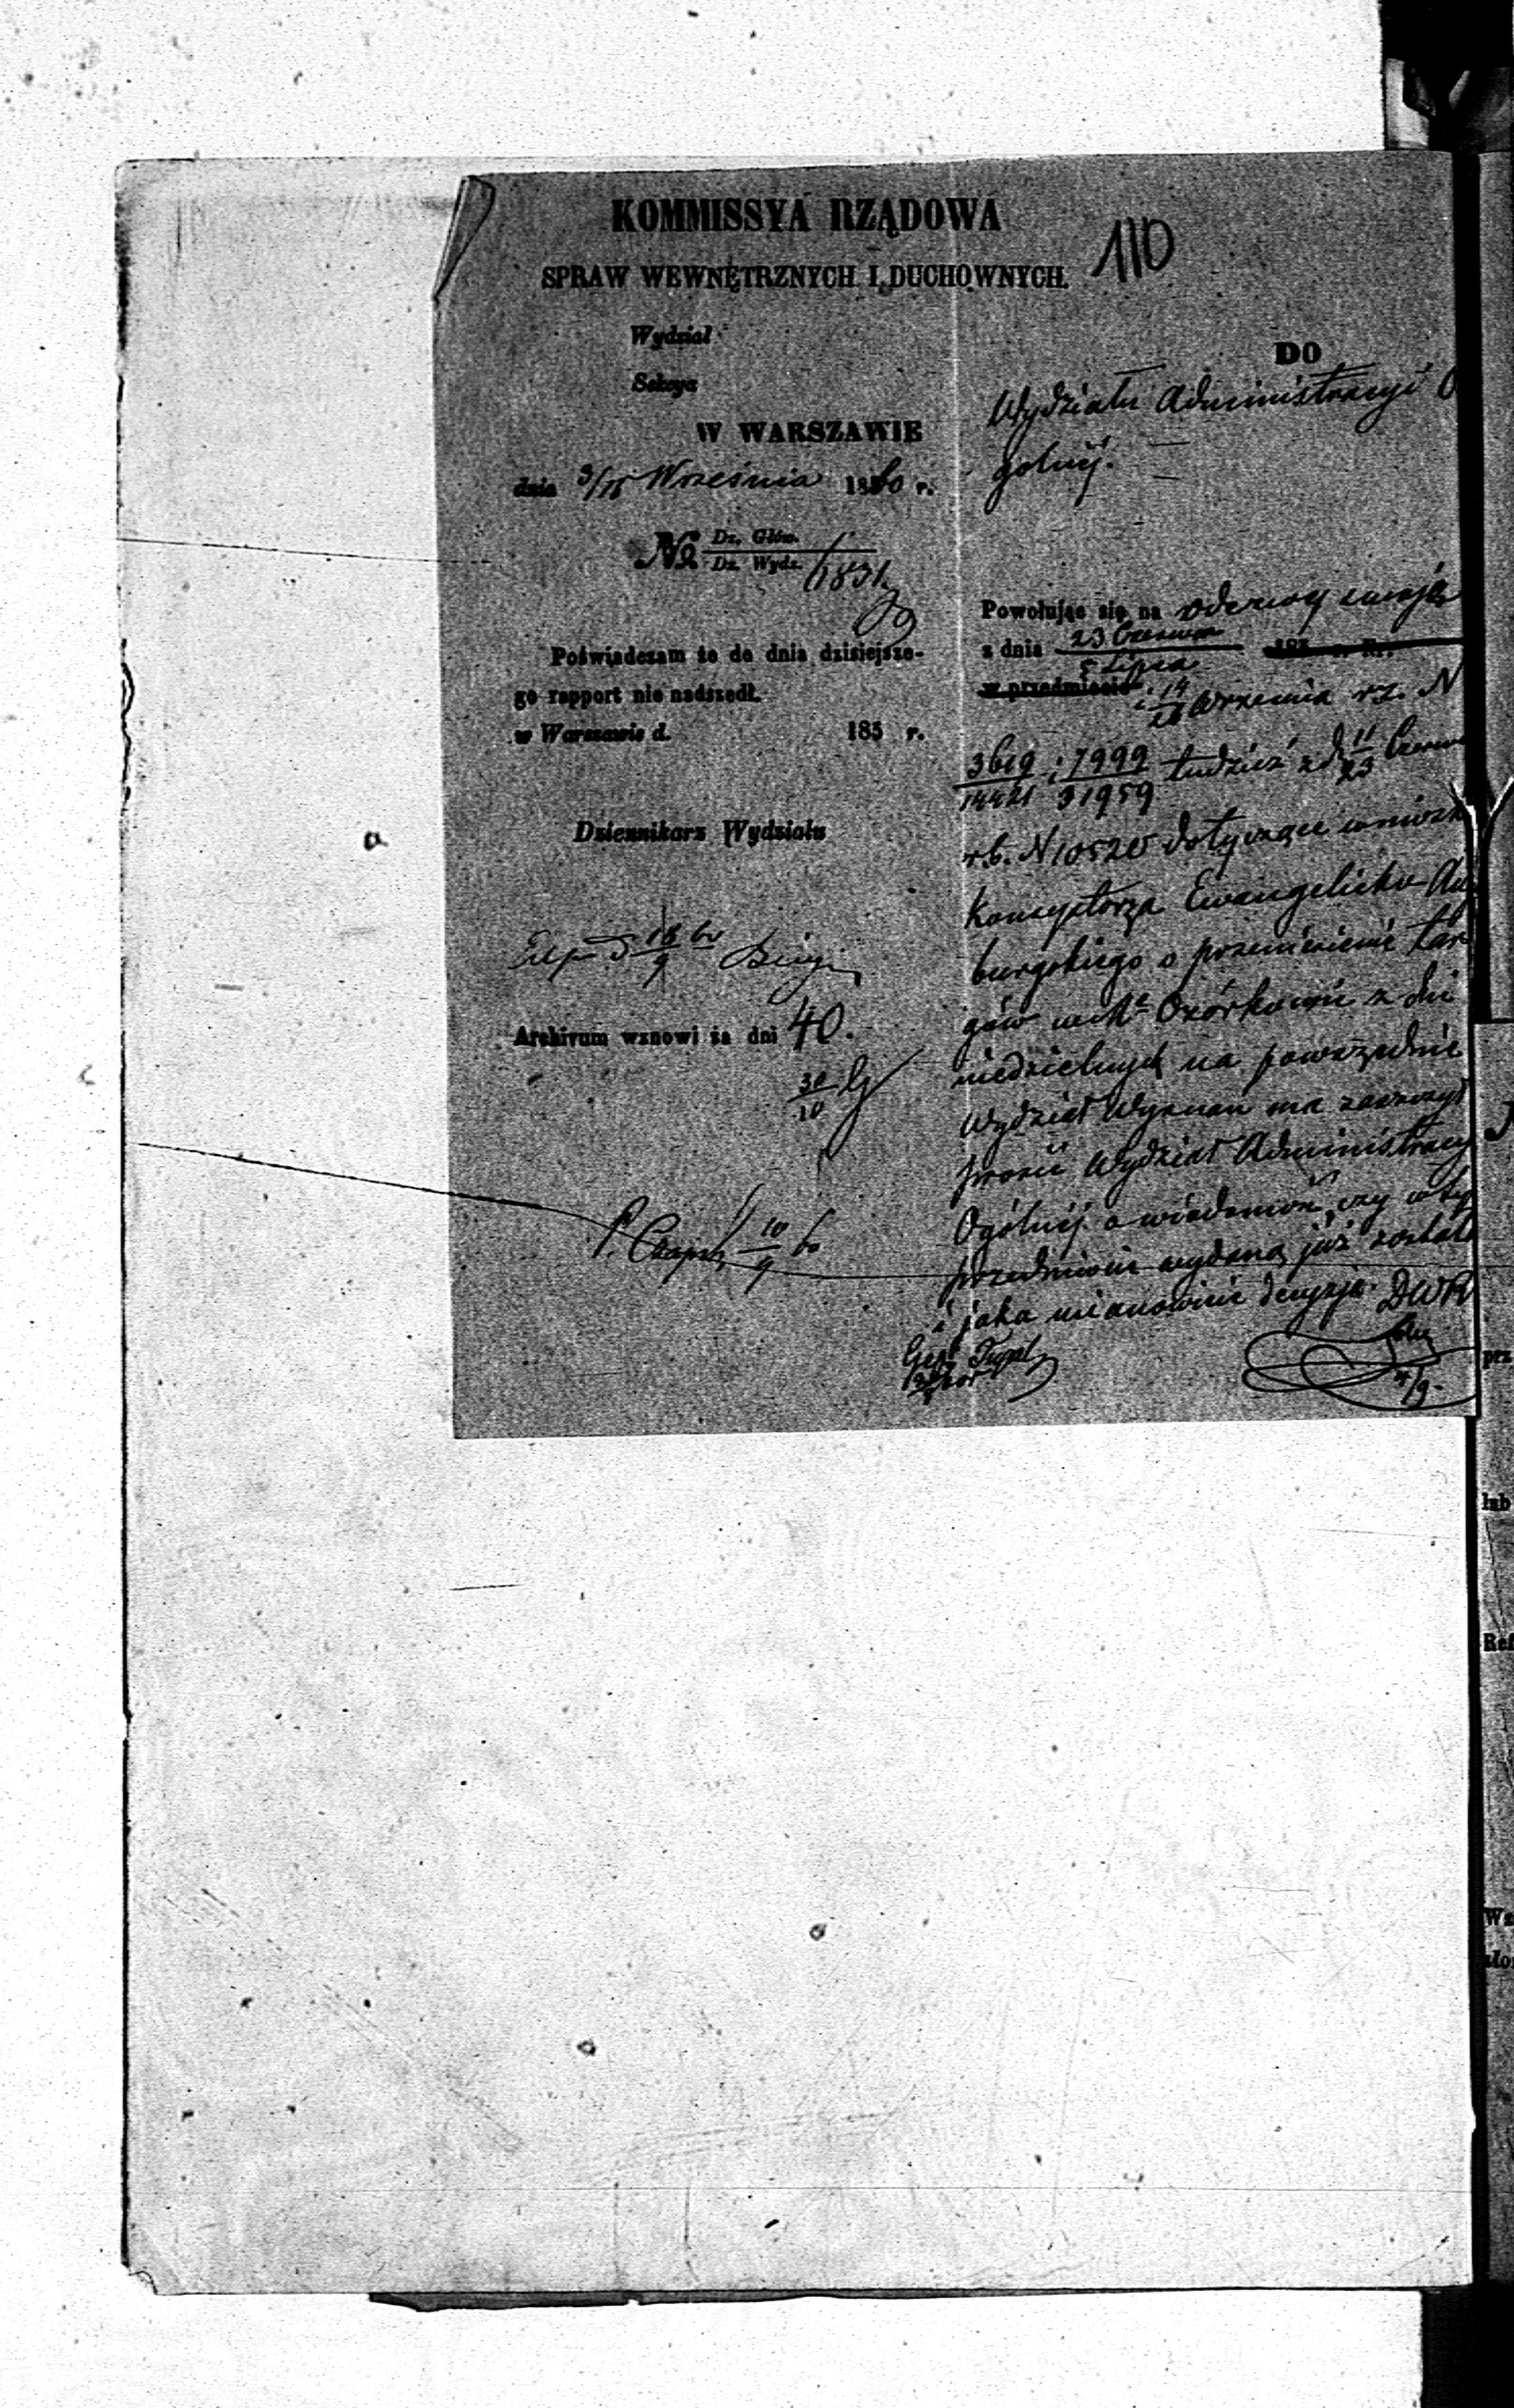 KOMMISSYA RZĄDOWA
SPRAW WEWNĘTRZNYCH I DUCHOWNYCH.
110
Wydział
Sekcya
W WARSZAWIE
dnia 3/15 Września 1860 r.
№ Dz. Głów.
Dz. Wydz. 1831
Poświadczam że do dnia dzisiejsze-
go rapport nie nadszedł.
w Warszawie d. 185 r.
Dziennikarz Wydziału
18/9 60
Archivum wznowi za dni 40.
30/10
10/9 60
DO
Wydziału Administracyi O
gólnéj.
Powołując się na odezwy swoje
z dnia 23 Czerwca / 5 Lipca 185 r. Nr.
w przedmiocie i 14/26 Września r.z. N
3619/14421 i 7999/31959 tudzież z d. 11/23 Czerwc
r.b. N 10520 dotyczące wniosk
Konsystorza Ewangelicko-Au
burgskiego o przeniesienie tar
gów w Mie Ozórkowie z dni
niedzielnych na powszednie
Wydział Wyznań ma zaszczyt
prosić Wydział Administracy
Ogólnéj o wiadomość, czy w ty
przedmiocie wydaną już została
i jaka mianowicie decyzja. DWR
4/9
prz
lub
Ref
Wz